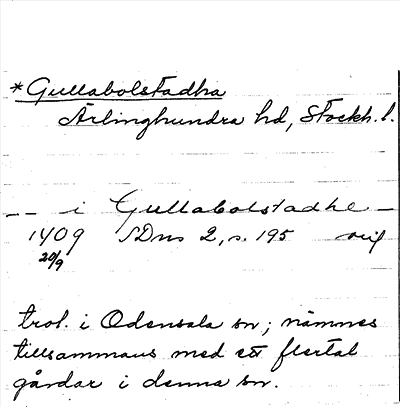 *Gullabolstadha
Ärlinghundra hd, Stockh. l.
-- i Gullabolstadhe -
1409 SDns 2, s. 195 orig
20/9
trol. i Odensala sn; nämnes
tillsammans med ett flertal
gårdar i denna sn.